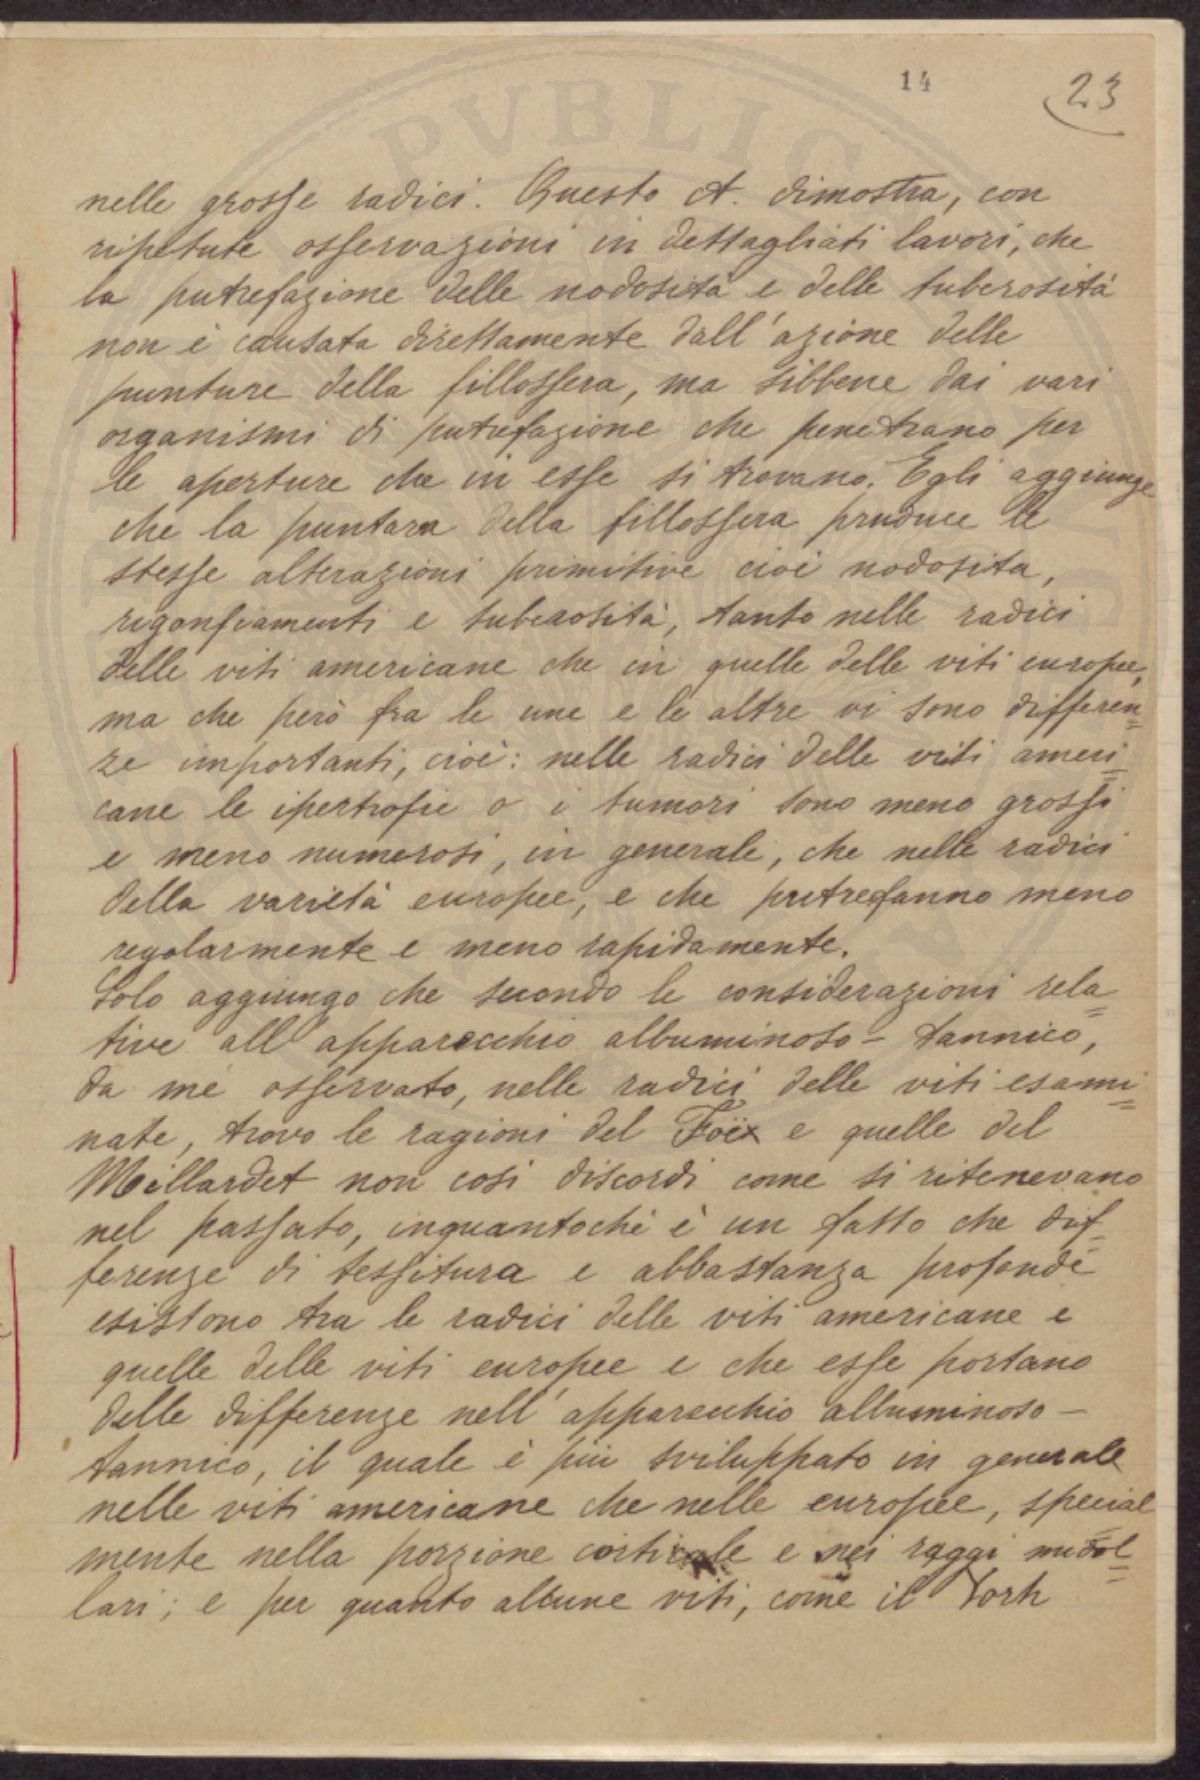 14
23
nelle grosse radici. Questo A. dimostra, con
ripetute osservazioni in dettagliati lavori, che
la putrefazione delle nodosità e delle tuberosità
non è causata direttamente dall'azione delle
punture della fillossera, ma sibbene dai vari
organismi di putrefazione che penetrano per
le aperture che in esse si trovano. Egli aggiunge
che la puntura della fillossera produce le
stesse alterazioni primitive cioè nodosita,
rigonfiamenti e tuberosità, tanto nelle radici
delle viti americane che in quelle delle viti europee,
ma che però fra le une e le altre vi sono differen=
ze importanti, cioè: nelle radici delle viti ameri=
cane le ipertrofie o i tumori sono meno grossi
e meno numerosi, in generale, che nelle radici
della varietà europee, e che putrefanno meno
regolarmente e meno rapidamente.
Solo aggiungo che secondo le considerazioni rela=
tive all'apparecchio albuminoso-tannico,
da me osservato, nelle radici delle viti esami=
nate, trovo le ragioni del Foëx e quelle del
Millardet non così discordi come si ritenevano
nel passato, inquantochè è un fatto che dif=
ferenze di tessitura e abbastanza profonde
esistono tra le radici delle viti americane e
quelle delle viti europee e che esse portano
delle differenze nell'apparecchio albuminoso-
tannico, il quale è più sviluppato in generale
nelle viti americane che nelle europee, special=
mente nella porzione corticale e nei raggi midol=
lari; e per quanto alcune viti, come il York
PVBLIC